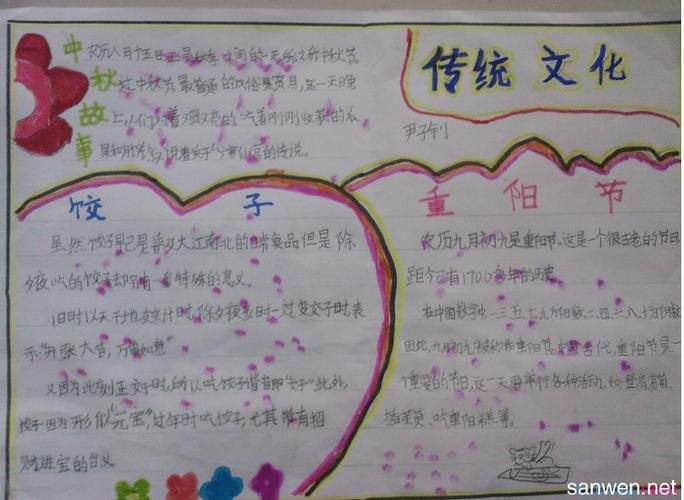 中秋故事
农历八月十五日正是秋季中间的一天所以称中秋节
过中秋节最普通的风俗是赏月,这一天晚
上,人们对着又圆又亮的,吃着刚刚收获的瓜
果和月饼,说着关于广寒仙宫的传说。
传统 文化
饺子
虽然饺子早已是普及大江南北的日常食品但是除
夕夜吃的饺子却另有一番特殊的意义。
旧时以天干地支来计时,除夕夜亥时一过变交子时,表
示"开张大吉,万事如意"
又因为此刻正交子时,所以吃饺子谐音即"交子"此外,
饺子因为形似"元宝",过年时吃饺子,尤其带有招
财进宝的含义
重阳节
农历九月初九是重阳节。这是一个很古老的节日
距今已有1700多年的历史
在中国数字中一三五七九为阳数二四六八十为阴数
因此,九月初九被称作重阳节。中国古代,重阳节是一
个重要的节日,这一天要举行各种活动,如登高赏菊、
插茱萸、吃重阳糕等。
sanwen.net